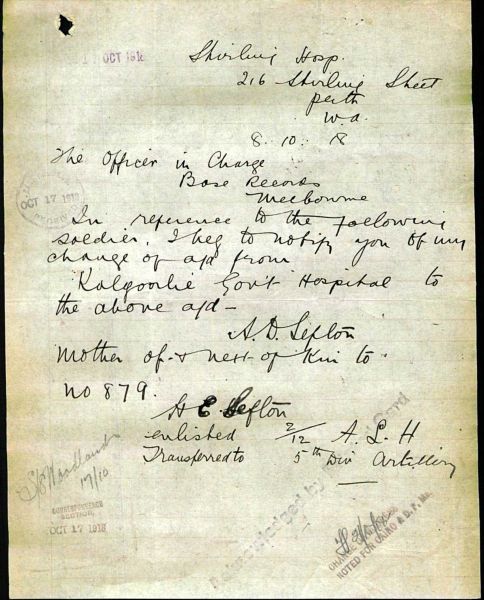 OCT 1918
Stirling Hosp.
216 Stirling Street
Perth
W.a.
8. 10. 8
The Officer in Charge
Base Records
Melbourne
OCT 17 1918
In reference to the following
soldier, I beg to notify you of my
change of a/d from
Kalgoorlie Gov't Hospital to
the above a/d —
A. D. Sefton
Mother of & next of Kin to
No 879.
H E Sefton
enlisted 2/12 A. L. H
Transferred to 5th Div Artillery
Acknowledged by Card
17/10
CORRESPONDENCE
SECTION
OCT 17 1918
CHANGE OF
NOTED FOR